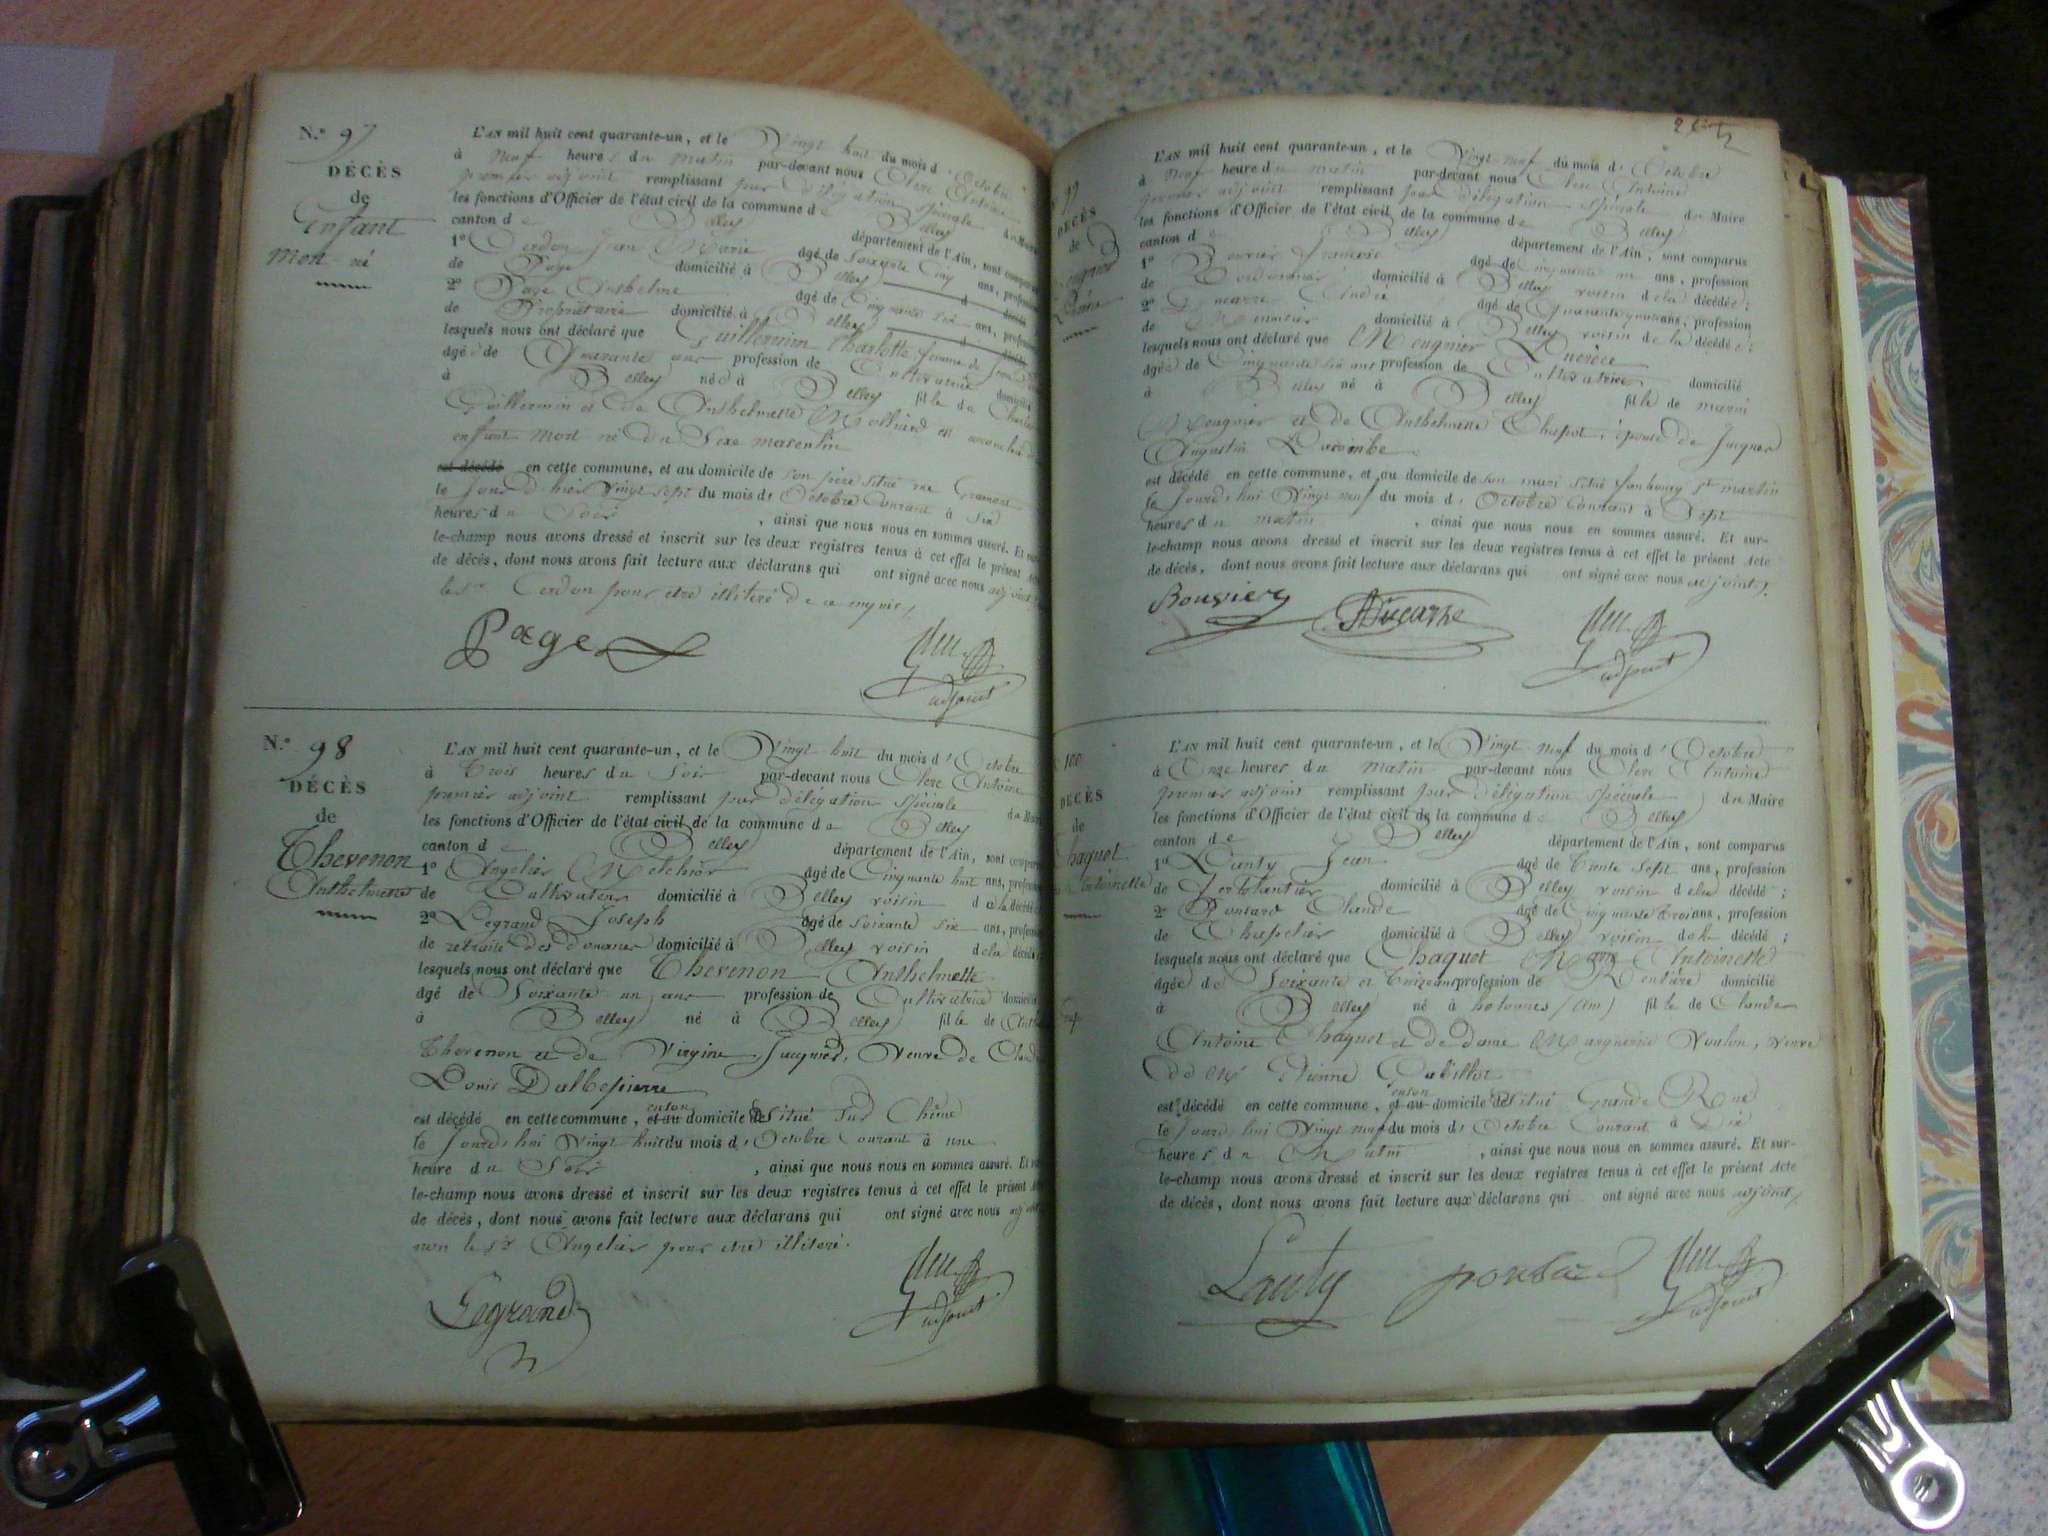 N.o 97
DÉCÈS
de
Enfant
Mort né
L'AN mil huit cent quarante-un, et le Vingt huit du mois d' Octobre
à Neuf heures du matin par-devant nous Clerc Antoine
premier adjoint remplissant par délégation spéciale du Maire
les fonctions d'Officier de l'état civil de la commune de Belley
canton de Belley département de l'Ain, sont comparus
1o Cerdon Jean Marie âgé de Soixante Cinq ans, profession
de domicilié à Belley
2o Page Anthelme âgé de Cinquante six ans, profession
de Propriétaire domicilié à Belley
lesquels nous ont déclaré que Guillermin Charlotte femme de
âgée de Quarante ans profession de Cultivatrice domiciliée
à Belley né à Belley fille de Charles
Guillermin et de Anthelmette Molliard est accouchée d'un
enfant mort né du Sexe masculin
est décédé en cette commune, et au domicile de son père situé rue
le Jour d'hier Vingt sept du mois d' Octobre Courant à Six
heures du Soir , ainsi que nous nous en sommes assuré. Et sur-
le-champ nous avons dressé et inscrit sur les deux registres tenus à cet effet le présent Acte
de décès, dont nous avons fait lecture aux déclarans qui ont signé avec nous adjoint
le Sr Cerdon pour être illitéré de ce enquis
Page
Clerc
adjoint
N.o 98
DÉCÈS
de
Thevenon
Anthelmette
L'AN mil huit cent quarante-un, et le Vingt huit du mois d' Octobre
à Trois heures du Soir par-devant nous Clerc Antoine
premier adjoint remplissant par délégation spéciale du Maire
les fonctions d'Officier de l'état civil de la commune de Belley
canton de Belley département de l'Ain, sont comparus
1o Angelier Melchior âgé de Cinquante huit ans, profession
de Cultivateur domicilié à Belley voisin de la décédée
2o Legrand Joseph âgé de soixante six ans, profession
de retraité des douanes domicilié à Belley voisin de la décédée
lesquels nous ont déclaré que Thevenon Anthelmette
âgé de Soixante un ans profession de Cultivatrice domicilié
à Belley né à Belley fille de
Thevenon et de Virgine Jacquier, Veuve de Claude
Louis Dalbepierre
est décédé en cette commune, et au en son domicile de situé sur Chêne
le Jourd'hui Vingt huit du mois d' Octobre Courant à une
heure du Soir , ainsi que nous nous en sommes assuré. Et sur-
le-champ nous avons dressé et inscrit sur les deux registres tenus à cet effet le présent Acte
de décès, dont nous avons fait lecture aux déclarans qui ont signé avec nous adjoint
non le Sr Angelier pour être illiteré.
Legrand
Clerc
adjoint
99
DÉCÈS
de
L'AN mil huit cent quarante-un, et le Vingt neuf du mois d' Octobre
à Neuf heures du matin par-devant nous Clerc Antoine
premier adjoint remplissant par délégation spéciale du Maire
les fonctions d'Officier de l'état civil de la commune de Belley
canton de Belley département de l'Ain, sont comparus
1o Bouvier François âgé de Cinquante un ans, profession
de Cordonnier domicilié à Belley voisin de la décédée ;
2o Ducarre André âgé de Quarante ans, profession
de Menuisier domicilié à Belley voisin de la décédée ;
lesquels nous ont déclaré que Mougnier Lucrèce
âgée de Cinquante six ans profession de Cultivatrice domicilié
à Belley né à Belley fille de
Mougnier et de Anthelmette Chapot, épouse de Jacques
Augustin Lacombe
est décédé en cette commune, et au domicile de son mari situé faubourg St martin
le Jourd'hui Vingt neuf du mois d' Octobre Courant à Sept
heures du matin , ainsi que nous nous en sommes assuré. Et sur-
le-champ nous avons dressé et inscrit sur les deux registres tenus à cet effet le présent Acte
de décès, dont nous avons fait lecture aux déclarans qui ont signé avec nous adjoint.
Bouvier
Ducarre
Clerc
adjoint
100
DÉCÈS
de
Chaquet
Antoinette
L'AN mil huit cent quarante-un, et le Vingt Neuf du mois d' Octobre
à Onze heures du matin par-devant nous Clerc Antoine
premier adjoint remplissant par délégation spéciale du Maire
les fonctions d'Officier de l'état civil de la commune de Belley
canton de Belley département de l'Ain, sont comparus
1o Lanty Jean âgé de Trente Sept ans, profession
de Ferblantier domicilié à Belley voisin de la décédé ;
2o Ponsard Claude âgé de Cinquante trois ans, profession
de Chapelier domicilié à Belley voisin de la décédé ;
lesquels nous ont déclaré que Chaquet Marie Antoinette
âgée de Soixante et Treize ans profession de Rentière domicilié
à Belley né à hotonnes (Ain) fille de Claude
Antoine Chaquet et de dame Marguerite Voulon, veuve
de Mr Etienne
est décédé en cette commune, et au en son domicile de situé Grande Rue
le Jourd'hui Vingt neuf du mois d' Octobre Courant à Dix
heures du Matin , ainsi que nous nous en sommes assuré. Et sur-
le-champ nous avons dressé et inscrit sur les deux registres tenus à cet effet le présent Acte
de décès, dont nous avons fait lecture aux déclarans qui ont signé avec nous adjoint
Lanty
ponsard
Clerc
adjoint